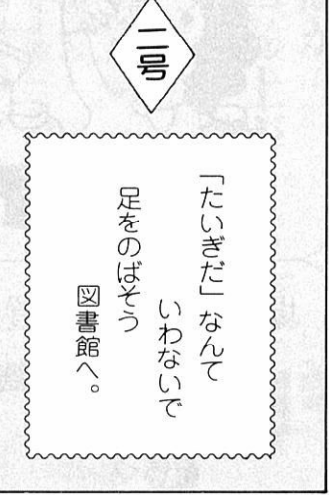 二号
「たいぎだ」なんて
いわないで
足をのばそう
図書館へ。